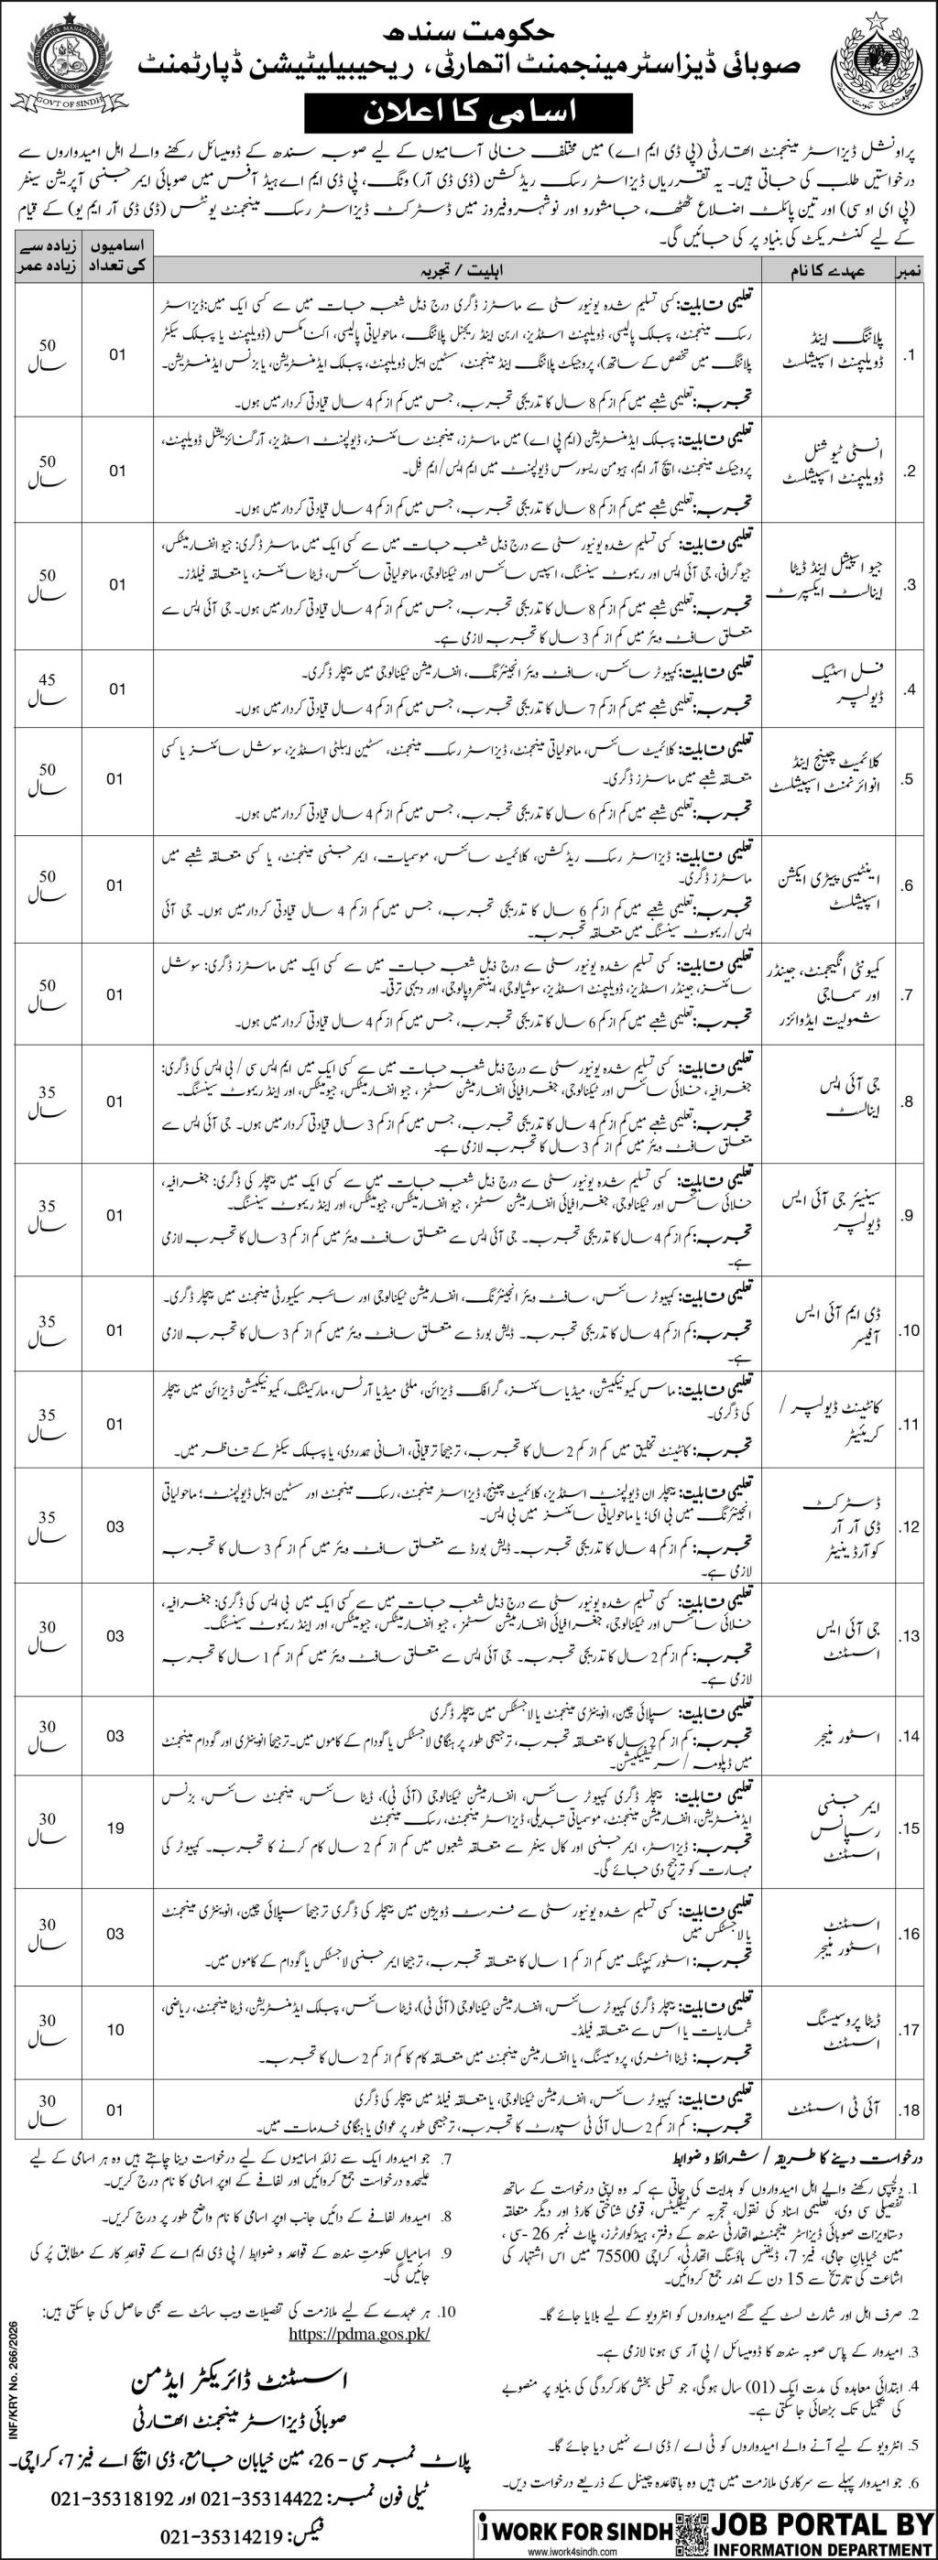 حکومت سندھ
صوبائی ڈیزاسٹر مینجمنٹ اتھارٹی، ریحیبیلیٹیشن ڈپارٹمنٹ
GOVT OF SINDH
اسامی کا اعلان
پراونشل ڈیزاسٹر مینجمنٹ اتھارٹی (پی ڈی ایم اے) میں مختلف خالی آسامیوں کے لیے صوبہ سندھ کے ڈومیسائل رکھنے والے اہل امیدواروں سے
درخواستیں طلب کی جاتی ہیں۔ یہ تقرریاں ڈیزاسٹر رسک ریڈکشن (ڈی ڈی آر) ونگ، پی ڈی ایم اے ہیڈ آفس میں صوبائی ایمرجنسی آپریشن سینٹر
(پی ای او سی) اور تین پائلٹ اضلاع ٹھٹھہ، جامشورو اور نوشہروفیروز میں ڈسٹرکٹ ڈیزاسٹر رسک مینجمنٹ یونٹس (ڈی ڈی آر ایم یو) کے قیام
کے لیے کنٹریکٹ کی بنیاد پر کی جائیں گی۔
نمبر | عہدے کا نام | اہلیت / تجربہ | اسامیوں کی تعداد | زیادہ سے زیادہ عمر
1. پلاننگ اینڈ ڈویلپمنٹ اسپیشلسٹ
تعلیمی قابلیت: کسی تسلیم شدہ یونیورسٹی سے ماسٹرز ڈگری درج ذیل شعبہ جات میں سے کسی ایک میں: ڈیزاسٹر
رسک مینجمنٹ، پبلک پالیسی، ڈویلپمنٹ اسٹڈیز، اربن اینڈ ریجنل پلاننگ، ماحولیاتی پالیسی، اکنامکس (ڈویلپمنٹ یا پبلک سیکٹر
پلاننگ میں تخصص کے ساتھ)، پروجیکٹ پلاننگ اینڈ مینجمنٹ، سسٹین ایبل ڈویلپمنٹ، پبلک ایڈمنسٹریشن، یا بزنس ایڈمنسٹریشن۔
تجربہ: تعلیمی شعبے میں کم از کم 8 سال کا تدریجی تجربہ، جس میں کم از کم 4 سال قیادتی کردار میں ہوں۔
01
50 سال
2. انسٹی ٹیوشنل ڈویلپمنٹ اسپیشلسٹ
تعلیمی قابلیت: پبلک ایڈمنسٹریشن (ایم پی اے) میں ماسٹرز، مینجمنٹ سائنسز، ڈیولپمنٹ اسٹڈیز، آرگنائزیشنل ڈویلپمنٹ،
پروجیکٹ مینجمنٹ، ایچ آر ایم، ہیومن ریسورس ڈیولپمنٹ میں ایم ایس/ایم فل۔
تجربہ: تعلیمی شعبے میں کم از کم 8 سال کا تدریجی تجربہ، جس میں کم از کم 4 سال قیادتی کردار میں ہوں۔
01
50 سال
3. جیو اسپیشل اینڈ ڈیٹا اینالسٹ ایکسپرٹ
تعلیمی قابلیت: کسی تسلیم شدہ یونیورسٹی سے درج ذیل شعبہ جات میں سے کسی ایک میں ماسٹر ڈگری: جیو انفارمیٹکس،
جیوگرافی، جی آئی ایس اور ریموٹ سینسنگ، اسپیس سائنس اور ٹیکنالوجی، ماحولیاتی سائنس، ڈیٹا سائنسز، یا متعلقہ فیلڈز۔
تجربہ: تعلیمی شعبے میں کم از کم 8 سال کا تدریجی تجربہ، جس میں کم از کم 4 سال قیادتی کردار میں ہوں۔ جی آئی ایس سے
متعلق سافٹ ویئر میں کم از کم 3 سال کا تجربہ لازمی ہے۔
01
50 سال
4. فل اسٹیک ڈیولپر
تعلیمی قابلیت: کمپیوٹر سائنس، سافٹ ویئر انجینئرنگ، انفارمیشن ٹیکنالوجی میں بیچلر ڈگری۔
تجربہ: تعلیمی شعبے میں کم از کم 7 سال کا تدریجی تجربہ، جس میں کم از کم 4 سال قیادتی کردار میں ہوں۔
01
45 سال
5. کلائمیٹ چینج اینڈ انوائرنمنٹ اسپیشلسٹ
تعلیمی قابلیت: کلائمیٹ سائنس، ماحولیاتی مینجمنٹ، ڈیزاسٹر رسک مینجمنٹ، سسٹین ایبلٹی اسٹڈیز، سوشل سائنسز یا کسی
متعلقہ شعبے میں ماسٹرز ڈگری۔
تجربہ: تعلیمی شعبے میں کم از کم 6 سال کا تدریجی تجربہ، جس میں کم از کم 4 سال قیادتی کردار میں ہوں۔
01
50 سال
6. اینٹیسی پیٹری ایکشن اسپیشلسٹ
تعلیمی قابلیت: ڈیزاسٹر رسک ریڈکشن، کلائمیٹ سائنس، موسمیات، ایمرجنسی مینجمنٹ، یا کسی متعلقہ شعبے میں
ماسٹرز ڈگری۔
تجربہ: تعلیمی شعبے میں کم از کم 6 سال کا تدریجی تجربہ، جس میں کم از کم 4 سال قیادتی کردار میں ہوں۔ جی آئی
ایس/ریموٹ سینسنگ میں متعلقہ تجربہ۔
01
50 سال
7. کمیونٹی انگیجمنٹ، جینڈر اور سماجی شمولیت ایڈوائزر
تعلیمی قابلیت: کسی تسلیم شدہ یونیورسٹی سے درج ذیل شعبہ جات میں سے کسی ایک میں ماسٹرز ڈگری: سوشل
سائنسز، جینڈر اسٹڈیز، ڈویلپمنٹ اسٹڈیز، سوشیالوجی، اینتھروپالوجی، اور دیہی ترقی۔
تجربہ: تعلیمی شعبے میں کم از کم 6 سال کا تدریجی تجربہ، جس میں کم از کم 4 سال قیادتی کردار میں ہوں۔
01
50 سال
8. جی آئی ایس اینالسٹ
تعلیمی قابلیت: کسی تسلیم شدہ یونیورسٹی سے درج ذیل شعبہ جات میں سے کسی ایک میں ایم ایس سی / بی ایس کی ڈگری:
جغرافیہ، خلائی سائنس اور ٹیکنالوجی، جغرافیائی انفارمیشن سسٹمز، جیو انفارمیٹکس، جیومیٹکس، اور اینڈ ریموٹ سینسنگ۔
تجربہ: تعلیمی شعبے میں کم از کم 4 سال کا تدریجی تجربہ، جس میں کم از کم 3 سال قیادتی کردار میں ہوں۔ جی آئی ایس سے
متعلق سافٹ ویئر میں کم از کم 3 سال کا تجربہ لازمی ہے۔
01
35 سال
9. سینیئر جی آئی ایس ڈیولپر
تعلیمی قابلیت: کسی تسلیم شدہ یونیورسٹی سے درج ذیل شعبہ جات میں سے کسی ایک میں بیچلر کی ڈگری: جغرافیہ،
خلائی سائنس اور ٹیکنالوجی، جغرافیائی انفارمیشن سسٹمز، جیو انفارمیٹکس، جیومیٹکس، اور اینڈ ریموٹ سینسنگ۔
تجربہ: کم از کم 4 سال کا تدریجی تجربہ۔ جی آئی ایس سے متعلق سافٹ ویئر میں کم از کم 3 سال کا تجربہ لازمی
ہے۔
01
35 سال
10. ڈی ایم آئی ایس آفیسر
تعلیمی قابلیت: کمپیوٹر سائنس، سافٹ ویئر انجینئرنگ، انفارمیشن ٹیکنالوجی اور سائبر سیکیورٹی مینجمنٹ میں بیچلر ڈگری۔
تجربہ: کم از کم 4 سال کا تدریجی تجربہ۔ ڈیش بورڈ سے متعلق سافٹ ویئر میں کم از کم 3 سال کا تجربہ لازمی
ہے۔
01
35 سال
11. کانٹینٹ ڈیولپر / کریئیٹر
تعلیمی قابلیت: ماس کمیونیکیشن، میڈیا سائنسز، گرافک ڈیزائن، ملٹی میڈیا آرٹس، مارکیٹنگ، کمیونیکیشن ڈیزائن میں بیچلر
کی ڈگری۔
تجربہ: کانٹینٹ تخلیق میں کم از کم 2 سال کا تجربہ، ترجیحاً ترقیاتی، انسانی ہمدردی، یا پبلک سیکٹر کے تناظر میں۔
01
35 سال
12. ڈسٹرکٹ ڈی آر آر کوآرڈینیٹر
تعلیمی قابلیت: بیچلر ان ڈیولپمنٹ اسٹڈیز، کلائمیٹ چینج، ڈیزاسٹر مینجمنٹ، رسک مینجمنٹ اور سسٹین ایبل ڈیولپمنٹ؛ ماحولیاتی
انجینئرنگ میں بی ای؛ یا ماحولیاتی سائنسز میں بی ایس۔
تجربہ: کم از کم 4 سال کا تدریجی تجربہ۔ ڈیش بورڈ سے متعلق سافٹ ویئر میں کم از کم 3 سال کا تجربہ
لازمی ہے۔
03
35 سال
13. جی آئی ایس اسسٹنٹ
تعلیمی قابلیت: کسی تسلیم شدہ یونیورسٹی سے درج ذیل شعبہ جات میں سے کسی ایک میں بی ایس کی ڈگری: جغرافیہ،
خلائی سائنس اور ٹیکنالوجی، جغرافیائی انفارمیشن سسٹمز، جیو انفارمیٹکس، جیومیٹکس، اور اینڈ ریموٹ سینسنگ۔
تجربہ: کم از کم 2 سال کا تدریجی تجربہ۔ جی آئی ایس سے متعلق سافٹ ویئر میں کم از کم 1 سال کا تجربہ
لازمی ہے۔
03
30 سال
14. اسٹور منیجر
تعلیمی قابلیت: سپلائی چین، انوینٹری مینجمنٹ یا لاجسٹکس میں بیچلر ڈگری
تجربہ: کم از کم 2 سال کا متعلقہ تجربہ، ترجیحی طور پر ہنگامی لاجسٹکس یا گودام کے کاموں میں۔ ترجیحاً انوینٹری اور گودام مینجمنٹ
میں ڈپلومہ / سرٹیفیکیشن۔
03
30 سال
15. ایمرجنسی رسپانس اسسٹنٹ
تعلیمی قابلیت: بیچلر ڈگری کمپیوٹر سائنس، انفارمیشن ٹیکنالوجی (آئی ٹی)، ڈیٹا سائنس، مینجمنٹ سائنس، بزنس
ایڈمنسٹریشن، انفارمیشن مینجمنٹ، موسمیاتی تبدیلی، ڈیزاسٹر مینجمنٹ، رسک مینجمنٹ
تجربہ: ڈیزاسٹر، ایمرجنسی اور کال سینٹر سے متعلقہ شعبوں میں کم از کم 2 سال کام کرنے کا تجربہ۔ کمپیوٹر کی
مہارت کو ترجیح دی جائے گی۔
19
30 سال
16. اسسٹنٹ اسٹور منیجر
تعلیمی قابلیت: کسی تسلیم شدہ یونیورسٹی سے فرسٹ ڈویژن میں بیچلر کی ڈگری ترجیحاً سپلائی چین، انوینٹری مینجمنٹ
یا لاجسٹکس میں
تجربہ: اسٹور کیپنگ میں کم از کم 1 سال کا متعلقہ تجربہ، ترجیحاً ایمرجنسی لاجسٹکس یا گودام کے کاموں میں۔
03
30 سال
17. ڈیٹا پروسیسنگ اسسٹنٹ
تعلیمی قابلیت: بیچلر ڈگری کمپیوٹر سائنس، انفارمیشن ٹیکنالوجی (آئی ٹی)، ڈیٹا سائنس، پبلک ایڈمنسٹریشن، ڈیٹا مینجمنٹ، ریاضی،
شماریات یا اس سے متعلقہ فیلڈ۔
تجربہ: ڈیٹا انٹری، پروسیسنگ، یا انفارمیشن مینجمنٹ میں متعلقہ کام کا کم از کم 2 سال کا تجربہ۔
10
30 سال
18. آئی ٹی اسسٹنٹ
تعلیمی قابلیت: کمپیوٹر سائنس، انفارمیشن ٹیکنالوجی، یا متعلقہ فیلڈ میں بیچلر کی ڈگری
تجربہ: کم از کم 2 سال آئی ٹی سپورٹ کا تجربہ، ترجیحی طور پر عوامی یا ہنگامی خدمات میں۔
01
30 سال
درخواست دینے کا طریقہ / شرائط و ضوابط
1. دلچسپی رکھنے والے اہل امیدواروں کو ہدایت کی جاتی ہے کہ وہ اپنی درخواست کے ساتھ
تفصیلی سی وی، تعلیمی اسناد کی نقول، تجربہ سرٹیفکیٹس، قومی شناختی کارڈ اور دیگر متعلقہ
دستاویزات صوبائی ڈیزاسٹر مینجمنٹ اتھارٹی سندھ کے دفتر، ہیڈکوارٹرز، پلاٹ نمبر 26-سی،
مین خیابان جامی، فیز 7، ڈیفنس ہاؤسنگ اتھارٹی، کراچی 75500 میں اس اشتہار کی
اشاعت کی تاریخ سے 15 دن کے اندر جمع کروائیں۔
2. صرف اہل اور شارٹ لسٹ کیے گئے امیدواروں کو انٹرویو کے لیے بلایا جائے گا۔
3. امیدوار کے پاس صوبہ سندھ کا ڈومیسائل / پی آر سی ہونا لازمی ہے۔
4. ابتدائی معاہدہ کی مدت ایک (01) سال ہوگی، جو تسلی بخش کارکردگی کی بنیاد پر منصوبے
کی تکمیل تک بڑھائی جا سکتی ہے۔
5. انٹرویو کے لیے آنے والے امیدواروں کو ٹی اے / ڈی اے نہیں دیا جائے گا۔
6. جو امیدوار پہلے سے سرکاری ملازمت میں ہیں وہ باقاعدہ چینل کے ذریعے درخواست دیں۔
7. جو امیدوار ایک سے زائد اسامیوں کے لیے درخواست دینا چاہتے ہیں وہ ہر اسامی کے لیے
علیحدہ درخواست جمع کروائیں اور لفافے کے اوپر اسامی کا نام درج کریں۔
8. امیدوار لفافے کے دائیں جانب اوپر اسامی کا نام واضح طور پر درج کریں۔
9. اسامیاں حکومتِ سندھ کے قواعد و ضوابط / پی ڈی ایم اے کے قواعد کار کے مطابق پُر کی
جائیں گی۔
10. ہر عہدے کے لیے ملازمت کی تفصیلات ویب سائٹ سے بھی حاصل کی جا سکتی ہیں:
https://pdma.gos.pk/
اسسٹنٹ ڈائریکٹر ایڈمن
صوبائی ڈیزاسٹر مینجمنٹ اتھارٹی
پلاٹ نمبر سی - 26، مین خیابان جامع، ڈی ایچ اے فیز 7، کراچی۔
ٹیلی فون نمبر: 021-35314422 اور 021-35318192
فیکس: 021-35314219
INF/KRY No. 266/2026
i WORK FOR SINDH
www.iwork4sindh.com
JOB PORTAL BY
INFORMATION DEPARTMENT